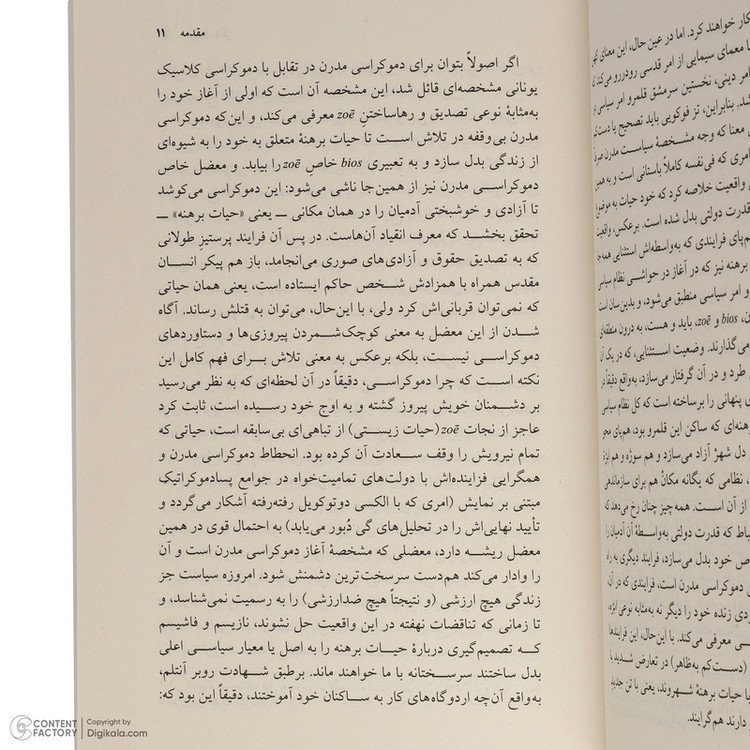 مقدمه ۱۱
اگر اصولاً بتوان برای دموکراسی مدرن در تقابل با دموکراسی کلاسیک
یونانی مشخصه‌ای قائل شد، این مشخصه آن است که اولی از آغاز خود را
به‌مثابهٔ نوعی تصدیق و رهاساختنِ zoē معرفی می‌کند، و این‌که دموکراسی
مدرن بی‌وقفه در تلاش است تا حیات برهنهٔ متعلق به خود را به شیوه‌ای
از زندگی بدل سازد و به تعبیری bios خاصِ zoē را بیابد. و معضل خاص
دموکراسی مدرن نیز از همین‌جا ناشی می‌شود: این دموکراسی می‌کوشد
تا آزادی و خوشبختی آدمیان را در همان مکانی ــ یعنی «حیات برهنه» ــ
تحقق بخشد که معرف انقیاد آن‌هاست. در پس آن فرایند پرستیزِ طولانی
که به تصدیق حقوق و آزادی‌های صوری می‌انجامد، باز هم پیکر انسان
مقدس همراه با همزادش شخص حاکم ایستاده است، یعنی همان حیاتی
که نمی‌توان قربانی‌اش کرد ولی، با این‌حال، می‌توان به قتلش رساند. آگاه
شدن از این معضل به معنی کوچک‌شمردن پیروزی‌ها و دستاوردهای
دموکراسی نیست، بلکه برعکس به معنی تلاش برای فهم کامل این
نکته است که چرا دموکراسی، دقیقاً در آن لحظه‌ای که به نظر می‌رسید
بر دشمنان خویش پیروز گشته و به اوج خود رسیده است، ثابت کرد
عاجز از نجات zoē (حیات زیستی) از تباهی‌ای بی‌سابقه است، حیاتی که
تمام نیرویش را وقف سعادت آن کرده بود. انحطاط دموکراسی مدرن و
همگرایی فزاینده‌اش با دولت‌های تمامیت‌خواه در جوامع پسادموکراتیک
مبتنی بر نمایش (امری که با الکسی دوتوکویل رفته‌رفته آشکار می‌گردد و
تأیید نهایی‌اش را در تحلیل‌های گی دُبور می‌یابد) به احتمال قوی در همین
معضل ریشه دارد، معضلی که مشخصهٔ آغاز دموکراسی مدرن است و آن
را وادار می‌کند هم‌دست سرسخت‌ترین دشمنش شود. امروزه سیاست جز
زندگی هیچ ارزشی (و نتیجتاً هیچ ضدارزشی) را به رسمیت نمی‌شناسد، و
تا زمانی که تناقضات نهفته در این واقعیت حل نشوند، نازیسم و فاشیسم
که تصمیم‌گیری دربارهٔ حیات برهنه را به اصل یا معیار سیاسی اعلی
بدل ساختند سرسختانه با ما خواهند ماند. برطبق شهادت روبر آنتلم،
به‌واقع آن‌چه اردوگاه‌های کار به ساکنان خود آموختند، دقیقاً این بود که:
کار خواهند کرد. اما در عین حال، این معنای
معمای سیمایی از امر قدسی رودررو می‌کند
امر دینی، نخستین سرمشق قلمرو امر سیاسی
شد. بنابراین، تز فوکویی باید تصحیح یا دست‌کم
معنا که وجه مشخصهٔ سیاست مدرن
امری که فی‌نفسه کاملاً باستانی است و به همین
واقعیت خلاصه کرد که خود حیات به موضوع
قدرت دولتی بدل شده است. برعکس، واقعیت
هم‌پای فرایندی که به‌واسطه‌اش استثنایی همه جا
برهنه نیز که در آغاز در حواشی نظام سیاسی
و امر سیاسی منطبق می‌شود، و بدین‌سان است
bios و zoē، باید و هست، به درون منطقه‌ای
می‌گذارند. وضعیت استثنایی، که در یک آن
طرد و در آن گرفتار می‌سازد، به‌واقع دقیقاً در
پنهانی را برساخته است که کل نظام سیاسی
برهنه‌ای که ساکن این قلمرو بود، هم‌پای محو
دل شهرْ آزاد می‌سازد و هم سوژه و هم ابژهٔ
نظامی که یگانه مکانْ هم برای سازماندهی
از آن است. همه چیز چنان رخ می‌دهد که
که قدرت دولتی به‌واسطهٔ آن آدمیان را
خود بدل می‌سازد، فرایند دیگری به راه
دموکراسی مدرن است، فرایندی که در آن،
زنده خود را دیگر نه به‌مثابه نوعی ابژه،
معرفی می‌کند. با این‌حال، این فرایندها
(دست‌کم به‌ظاهر) در تعارض شدید با
حیات برهنهٔ شهروند، یعنی با تن جدید
دارند هم‌گرایند.
CONTENT FACTORY
Copyright by
Digikala.com